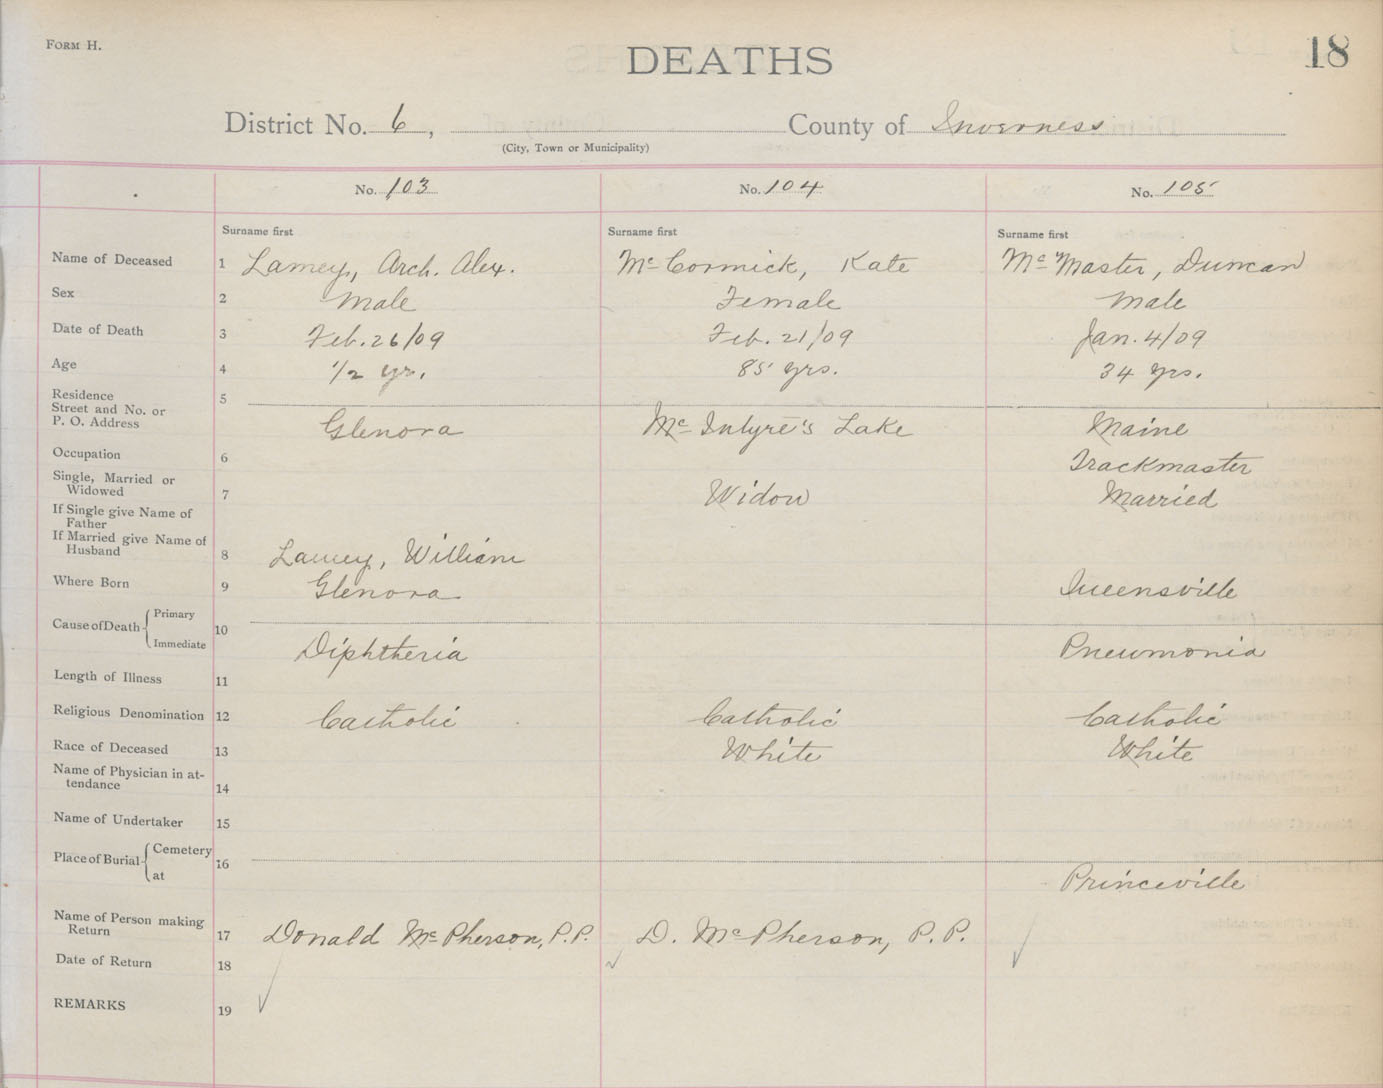 FORM H.
DEATHS
18
District No. 6, County of Inverness
(City, Town or Municipality)
No. 103 No. 104 No. 105
Surname first Surname first Surname first
Name of Deceased 1 Lamey, Arch. Alex. Mc Cormick, Kate Mc Master, Duncan
Sex 2 Male Female Male
Date of Death 3 Feb. 26/09 Feb. 21/09 Jan. 4/09
Age 4 1/2 yr. 85 yrs. 34 yrs.
Residence 5
Street and No. or
P. O. Address Glenora Mc Intyre's Lake Maine
Occupation 6 Trackmaster
Single, Married or
Widowed 7 Widow Married
If Single give Name of
Father
If Married give Name of
Husband 8 Lamey, William
Where Born 9 Glenora Queensville
Cause of Death Primary
Immediate 10 Diphtheria Pneumonia
Length of Illness 11
Religious Denomination 12 Catholic Catholic Catholic
Race of Deceased 13 White White
Name of Physician in at-
tendance 14
Name of Undertaker 15
Place of Burial Cemetery
at 16 Princeville
Name of Person making
Return 17 Donald Mc Pherson, P.P. D. Mc Pherson, P. P.
Date of Return 18
REMARKS 19